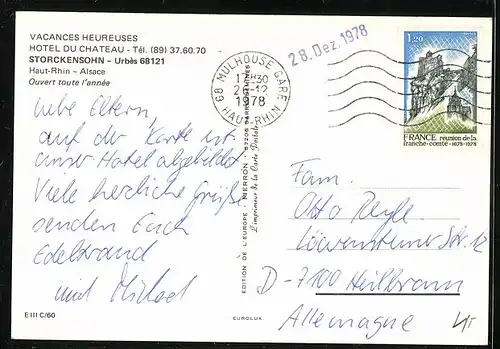 VACANCES HEUREUSES
HOTEL DU CHATEAU - Tél. (89) 37.60.70
STORCKENSOHN - Urbès 68121
Haut-Rhin - Alsace
Ouvert toute l'année
28. Dez. 1978
68 MULHOUSE GARE
17H30
1978
HAUT-RHIN
1,20
FRANCE réunion de la
franche-comté • 1678-1978
Liebe Eltern,
auf der Karte ist
unser Hotel abgebildet
Viele herzliche Grüße
senden Euch
Edeltraud
und Michael
EDITION DE L'EUROPE - PIERRON -
L'imprimeur de la Carte Postale
Fam.
Otto
Löwensteiner Str. 12
D-7100 Heilbronn
Allemagne
E III C/60
EUROLUX